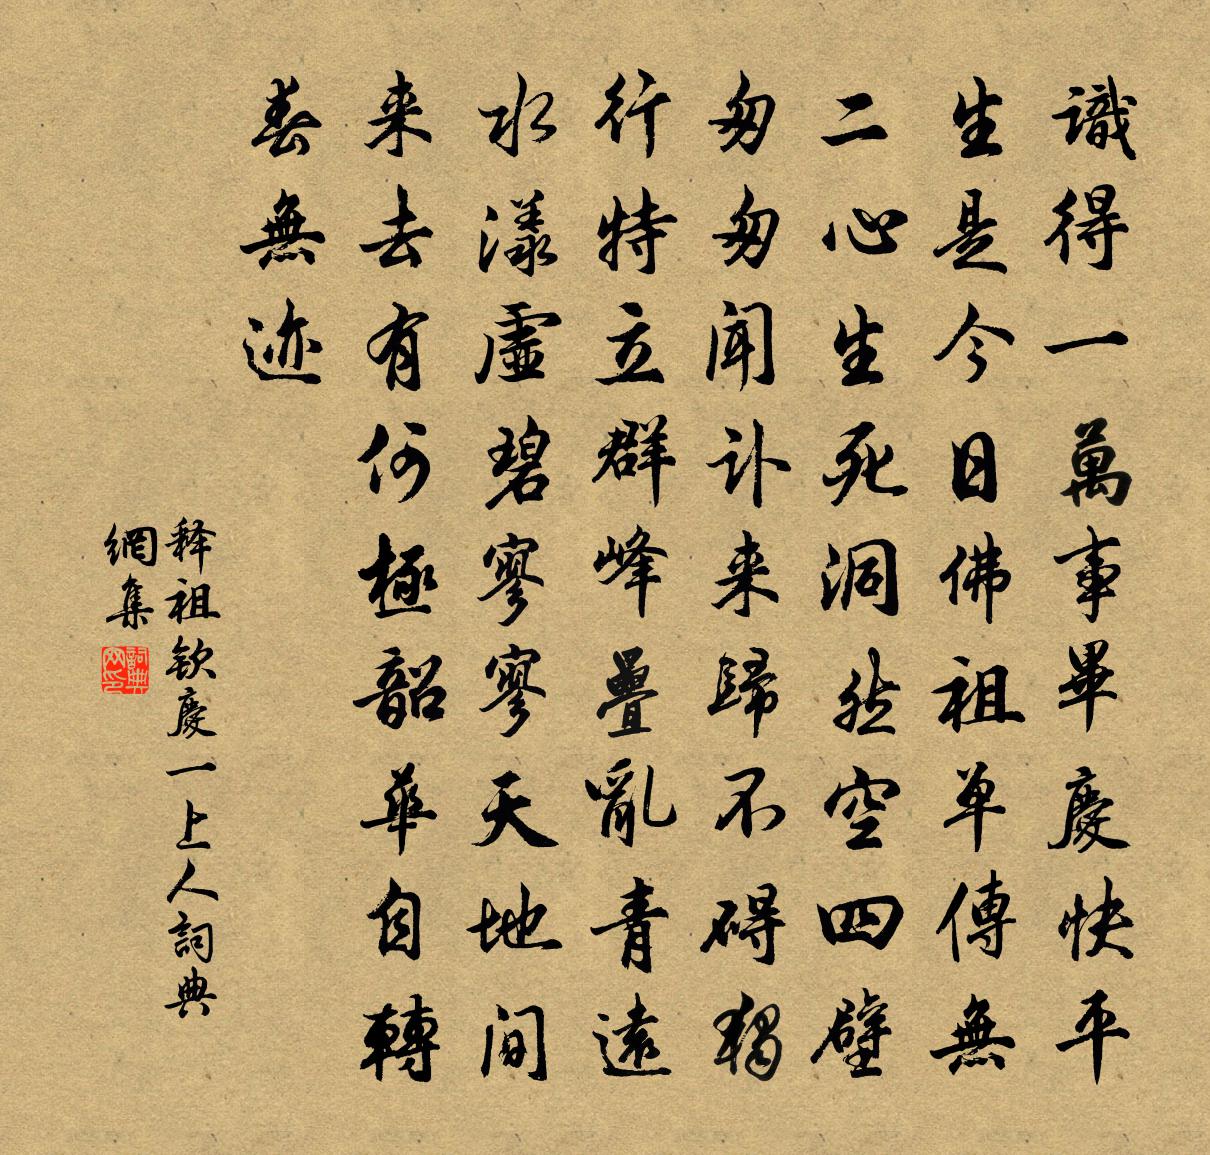 識得一萬事畢慶快平
生是今日佛祖单傳無
二心生死洞然空四壁
匆匆聞訃来歸不碍獨
行特立群峰疊亂青遠
水漾虛碧寥寥天地间
来去有何極韶華自轉
春無迹
释祖钦慶一上人詞典
網集
詞典
网